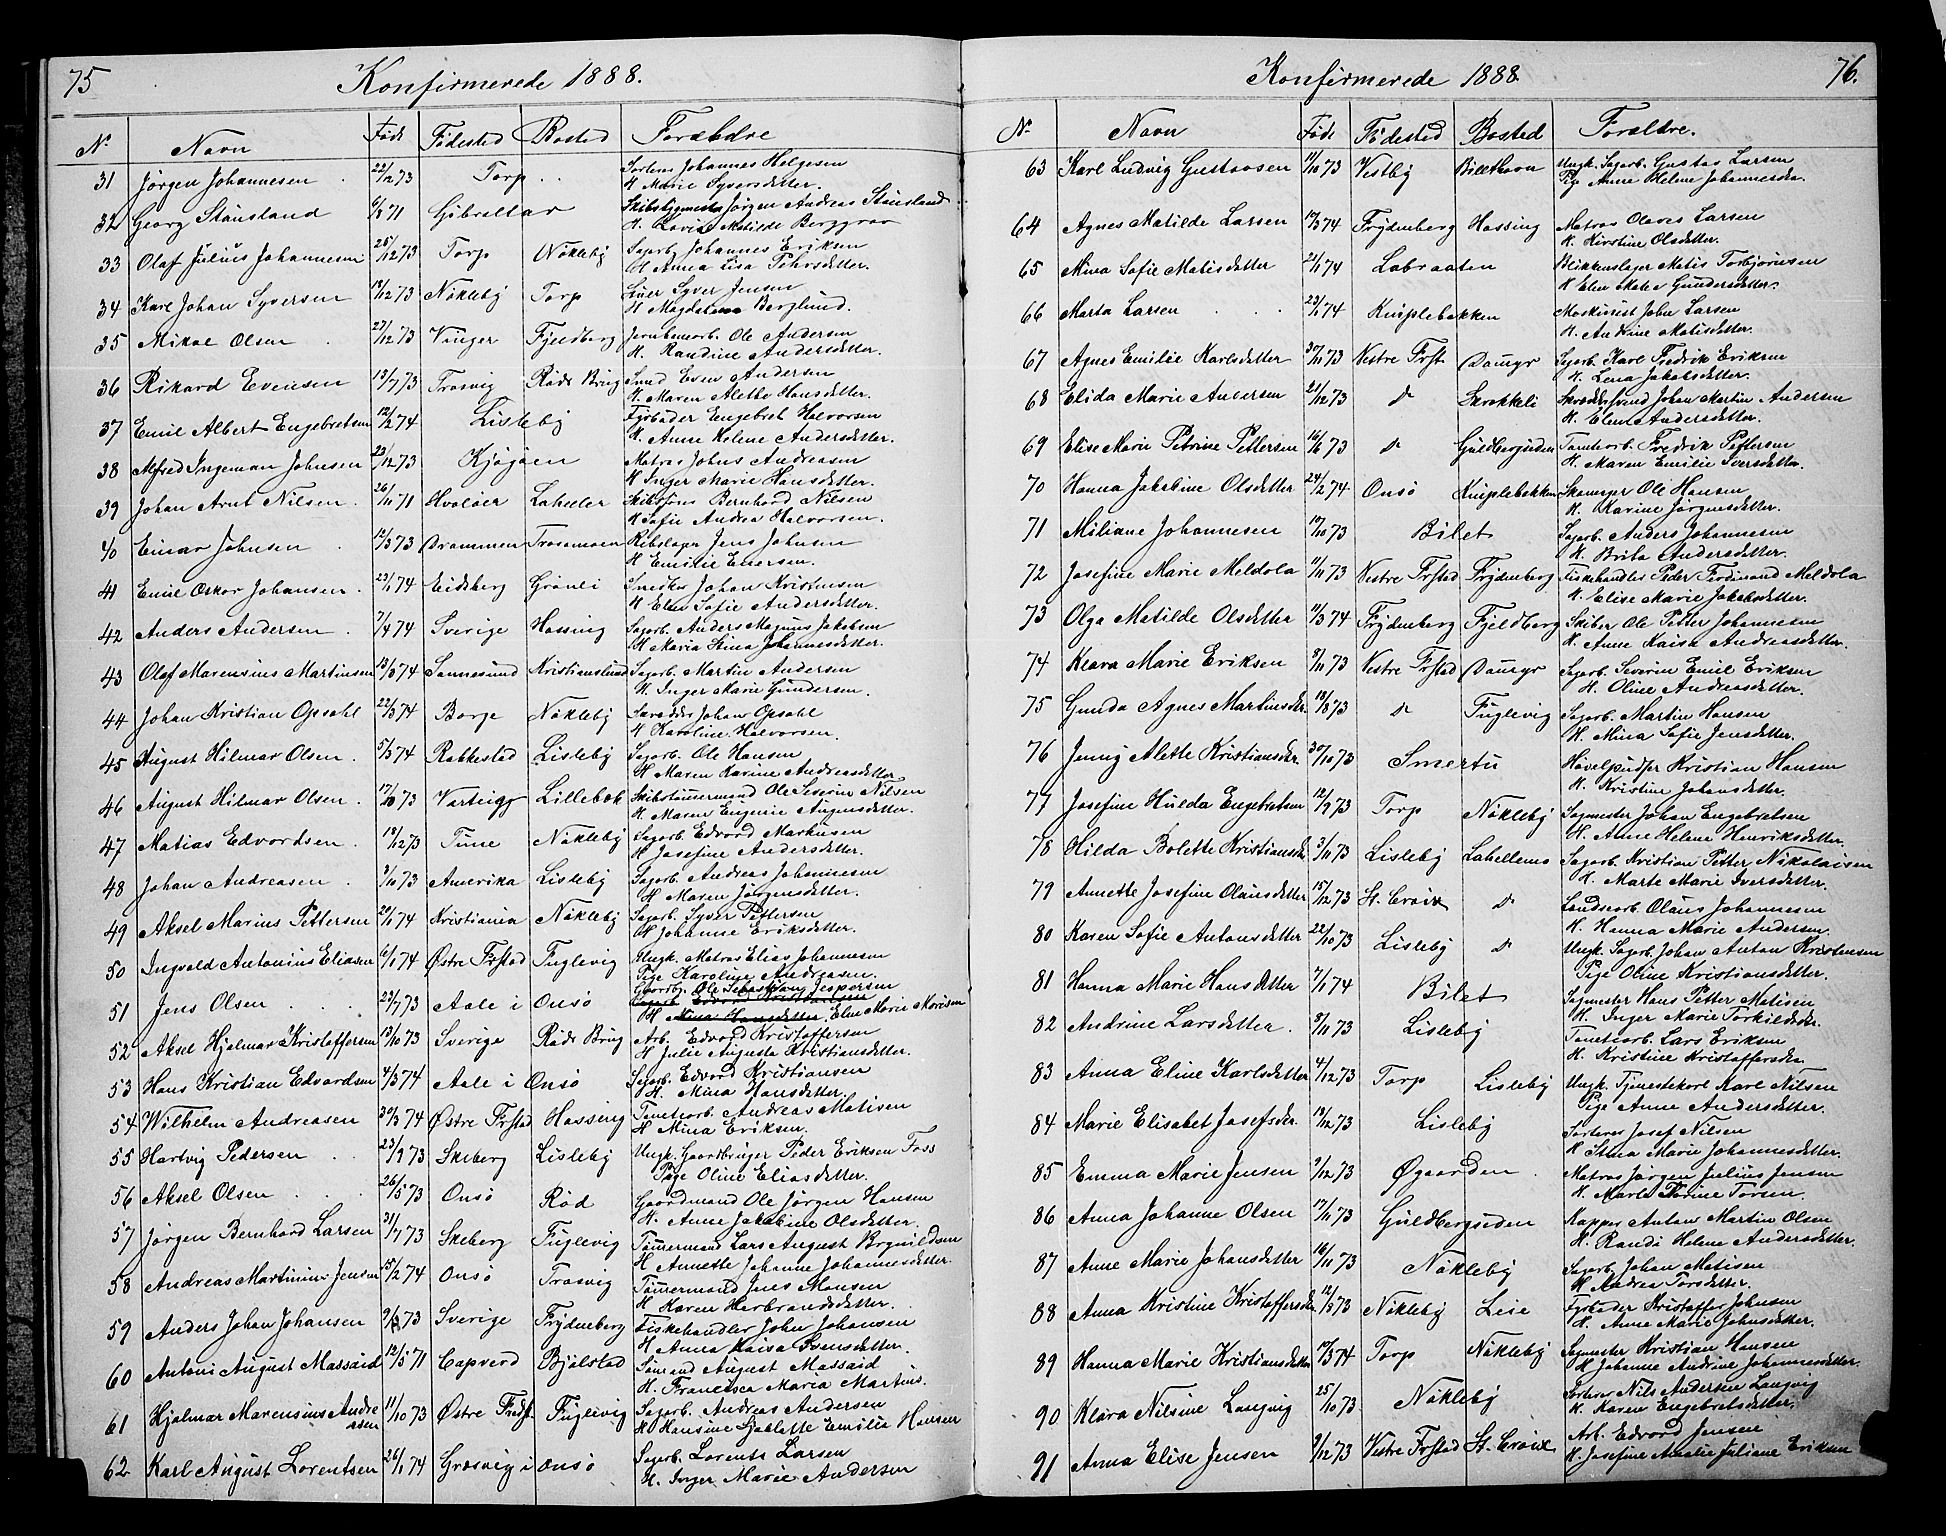 75 Konfirmerede 1888.
No Navn Føds Fødested Bosted Forældre
31 Jørgen Johannesen 22/12 73 Torp Sorterer Johannes Helgesen
H. Marie Syversdatter.
32 Georg Stausland 6/8 71 Gibraltar Jørgen Andreas Stausland
H. Lovise Matilde Berggrav
33 Olaf Julius Johannesen 25/12 73 Torp Nøkleby Sagarb. Johannes Eriksen
H Anna Lisa
34 Karl Johan Syversen 19/12 73 Nøkleby Torp Syver Jensen
H Magdalena Berglund.
35 Mikal Olsen 27/12 73 Vinger Fjeldberg Jernbanearb. Ole Andersen
H. Randine Andersdatter.
36 Rikard Evensen 13/7 73 Trosvig Røds Brug Smed Even Andersen
H. Maren Alette Hansdatter.
37 Emil Albert Engebretsen 12/2 74 Lisleby Fyrbøder Engebret Halvorsen
H. Anne Helene Andersdatter.
38 Alfred Ingeman Johnsen 23/12 73 Kjøgøen Matros Johns Andreasen
H Inger Marie Hansdatter.
39 Johan Arnt Nilsen 26/11 71 Hvaløer Lahelle Skibsfører Bernhard Nilsen
H Sofie Andrea Halvorsen.
40 Einar Johnsen 12/3 73 Drammen Rebslager Jens Johnsen
H Emilie Enersen.
41 Emil Oskar Johansen 23/1 74 Eidsberg Grønli Johan Kristensen
H Elen Sofie Andersdatter.
42 Anders Andersen 7/4 74 Sverige Hassing Sagarb. Anders Magnus Jakobsen
H Maria Stina Johannesdatter.
43 Olaf Marensius Martinsen 13/3 74 Sannesund Kristianslund Sagarb. Martin Andersen
H. Inger Marie Gundersen.
44 Johan Kristian Opsahl 22/3 74 Borge Nøkleby Skrædder Johan Opsahl
H Karoline Halvorsen.
45 August Hilmar Olsen 5/3 74 Rakkestad Lisleby Sagarb. Ole Hansen
H Maren Karine Andreasdatter
46 August Hilmar Olsen 17/10 73 Varteigg Lillebæk Skibstømmermand Ole Severin Nilsen
H. Maren Eugenie Augusdatter.
47 Matias Edvardsen 18/12 73 Tune Nøkleby Sagarb. Edvard Markusen
H Josefine Andersdatter.
48 Johan Andreasen 3/10 73 Amerika Lisleby Sagarb. Andreas Johannesen
H Maren Jørgensdatter.
49 Aksel Marius Pettersen 21/1 74 Kristiania Nøkleby Sagarb. Syver Pettersen
H Johanne Eriksdatter.
50 Ingvald Antonius Eliasen 6/1 74 Østre Frstad Fuglevig Ungk. Matros Elias Johannesen
Pige Karoline Andreasen.
51 Jens Olsen 23/7 73 Aale i Onsø Gaardbr. Ole Sebastian Jespersen
Sagarb Edvard Kristiansen
H Mina Hansdatter, Elen Marie Marisen
52 Aksel Hjalmar Kristoffersen 13/10 73 Sverige Røds Brug Arb. Edvard Kristoffersen
H Julie Augusta Kristiansdatter.
53 Hans Kristian Edvardsen 4/3 74 Aale i Onsø Sagarb. Edvard Kristiansen
H. Mina Hansdatter
54 Wilhelm Andreasen 30/3 74 Østre Frstad Hassing Tomtearb. Andreas Matisen
H Mina Eriksen.
55 Hartvig Pedersen 23/9 73 Skeberg Lisleby Ungk. Gaardbruger Peder Eriksen Foss
Pige Oline Eliasdatter.
56 Aksel Olsen 26/5 73 Onsø Rød Gaardmand Ole Jørgen Hansen
H. Anne Jakobine Olsdatter.
57 Jørgen Bernhard Larsen 31/7 73 Skeberg Fuglevig Tømmermand Lars August Brynildsen
H Annette Johanne Johannesdatter.
58 Andreas Martinius Jensen 15/2 74 Onsø Trosvig Tømmermand Jens Monsen
H Karen Herbrandsdatter.
59 Anders Johan Johansen 9/3 73 Sverige Frydenberg Fiskehandler John Johansen
H Anna Kaisa Svensdatter.
60 Antoni August Massaid 12/5 71 Capverd Bjølstad Sømand August Massaid
H. Francisca Maria Martins.
61 Hjalmar Marensius Andreasen 11/10 73 Østre Fredst. Fuglevig Sagarb. Andreas Andersen
H Hansine Sjarlotte Emilie Hansen
62 Karl August Lorentsen 26/1 74 Græsvig i Onsø Sagarb. Lorents Larsen
H. Inger Marie Andersen
Konfirmerede 1888. 76.
No Navn Føds Fødested Bosted Forældre.
63 Karl Ludvig Gustavsen 11/10 73 Vestby Ungk. Sagarb. Gustav Larsen
Pige Anne Helene Johannesdtr.
64 Agnes Matilde Larsen 19/3 74 Frydenberg Hassing Matros Olaves Larsen
H. Kirstine Olsdatter.
65 Mina Sofie Matisdatter 21/1 74 Labraaten Blikkenslager Matis Torbjørnsen
H Elen Gundersdatter.
66 Marta Larsen 23/1 74 Kniplebakken Maskinist John Larsen
H. Andrine Matisdatter.
67 Agnes Emilie Karlsdatter 30/11 73 Vestre Frst Damyr Sagarb. Karl Fredrik Eriksen
H. Lena Jakobsdatter.
68 Elida Marie Andersen 21/12 73 do Skrædersvend Johan Martin Andersen
H. Elen Andersdatter.
69 Elise Marie Petrine Pettersen 16/6 73 do Guldbergsiden Tomtearb. Fredrik Pettersen
H. Maren Emilie Iversdatter.
70 Hanna Jakobine Olsdatter 24/2 74 Onsø Kniplebakken Ole Hansen
H. Karine Jørgensdatter.
71 Miliane Johannesen 19/10 73 Bilet Sagarb. Anders Johannesen
H. Brita Andersdatter.
72 Josefine Marie Meldola 11/11 73 Vestre Frstad Frydenberg Fiskehandler Peder Ferdinand Meldola
H. Elise Marie Jakobsdatter.
73 Olga Matilde Olsdatter 11/3 74 Frydenberg Fjeldberg Skiber Ole Petter Johannesen
H. Anne Kaisa Andreasdatter.
74 Klara Marie Eriksen 8/11 73 Vestre Frstad Damyr Sagarb. Severin Emil Eriksen
H. Oline Andreasdatter.
75 Gunda Agnes Martinsdtr. 18/8 73 do Fuglevig Sagarb. Martin Hansen
H. Mina Sofie Jensdatter.
76 Jenny Alette Kristiansdtr. 30/10 73 Smertu Høvelpudser Kristian Hansen
H. Kristine Johansdatter.
77 Josefine Hulda Engebretsen 12/9 73 Torp Nøkleby Sagmester Johan Engebretsen
H. Anne Helene Henriksdatter.
78 Hilda Bolette Kristiansdtr 3/11 73 Lisleby Lahellemo Sagarb. Kristian Petter Nikolaisen
H. Marte Marie Iversdatter.
79 Annette Josefine Olausdatter 15/12 73 St. Croix do Landsearb. Olaus Johannesen
H. Hanna Marie Andersen.
80 Karen Sofie Antonsdatter 22/10 73 Lisleby do Ungk. Sagarb. Johan Anton Kristensen
Pige Oline Kristiansdatter.
81 Hanna Marie Hansdatter 7/1 74 Bilet Sagmester Hans Petter Matisen
H. Inger Marie Torkildsdtr.
82 Andrine Larsdatter. 8/11 73 Lisleby Tomtearb. Lars Eriksen
H. Kristine Kristoffersdtr
83 Anna Eline Karlsdatter 4/12 73 Torp Lisleby Ungk. Tjenestekarl Karl Nilsen
Pige Anne Andersdatter.
84 Marie Elisabet Josefsdtr. 13/12 73 Lisleby Sorterer Josef Nilsen
H Stina Marie Johannesdatter.
85 Emma Marie Jensen 9/12 73 Øgaarden Matros Jørgen Julius Jensen
H. Marte Torine Torsen.
86 Anna Johanne Olsen 17/11 73 Guldbergsiden Kapper Anton Martin Olsen
H. Randi Helene Andersdatter.
87 Anne Marie Johansdatter 16/11 73 Nøkleby Sagarb. Johan Matisen
H Andrea Torsdatter.
88 Anna Kristine Kristoffersdtr 12/3 73 Nøkleby Leie Fyrbøder Kristoffer Johnsen
H. Anne Marie Johnsdatter.
89 Hanna Marie Kristiansdatter 17/3 74 Torp Nøkleby Sagmester Kristian Hansen
H Johanne Andrine Johannesdatter.
90 Klara Nilsine Langvig 25/10 73 Nøkleby Sorterer Nils Andersen Langvig
H. Karen Engebretsdatter.
91 Anna Elise Jensen 9/12 73 Vestre Frstad St. Croix Arb. Edvard Jensen
H. Josefine Amalie Juliane Eriksen